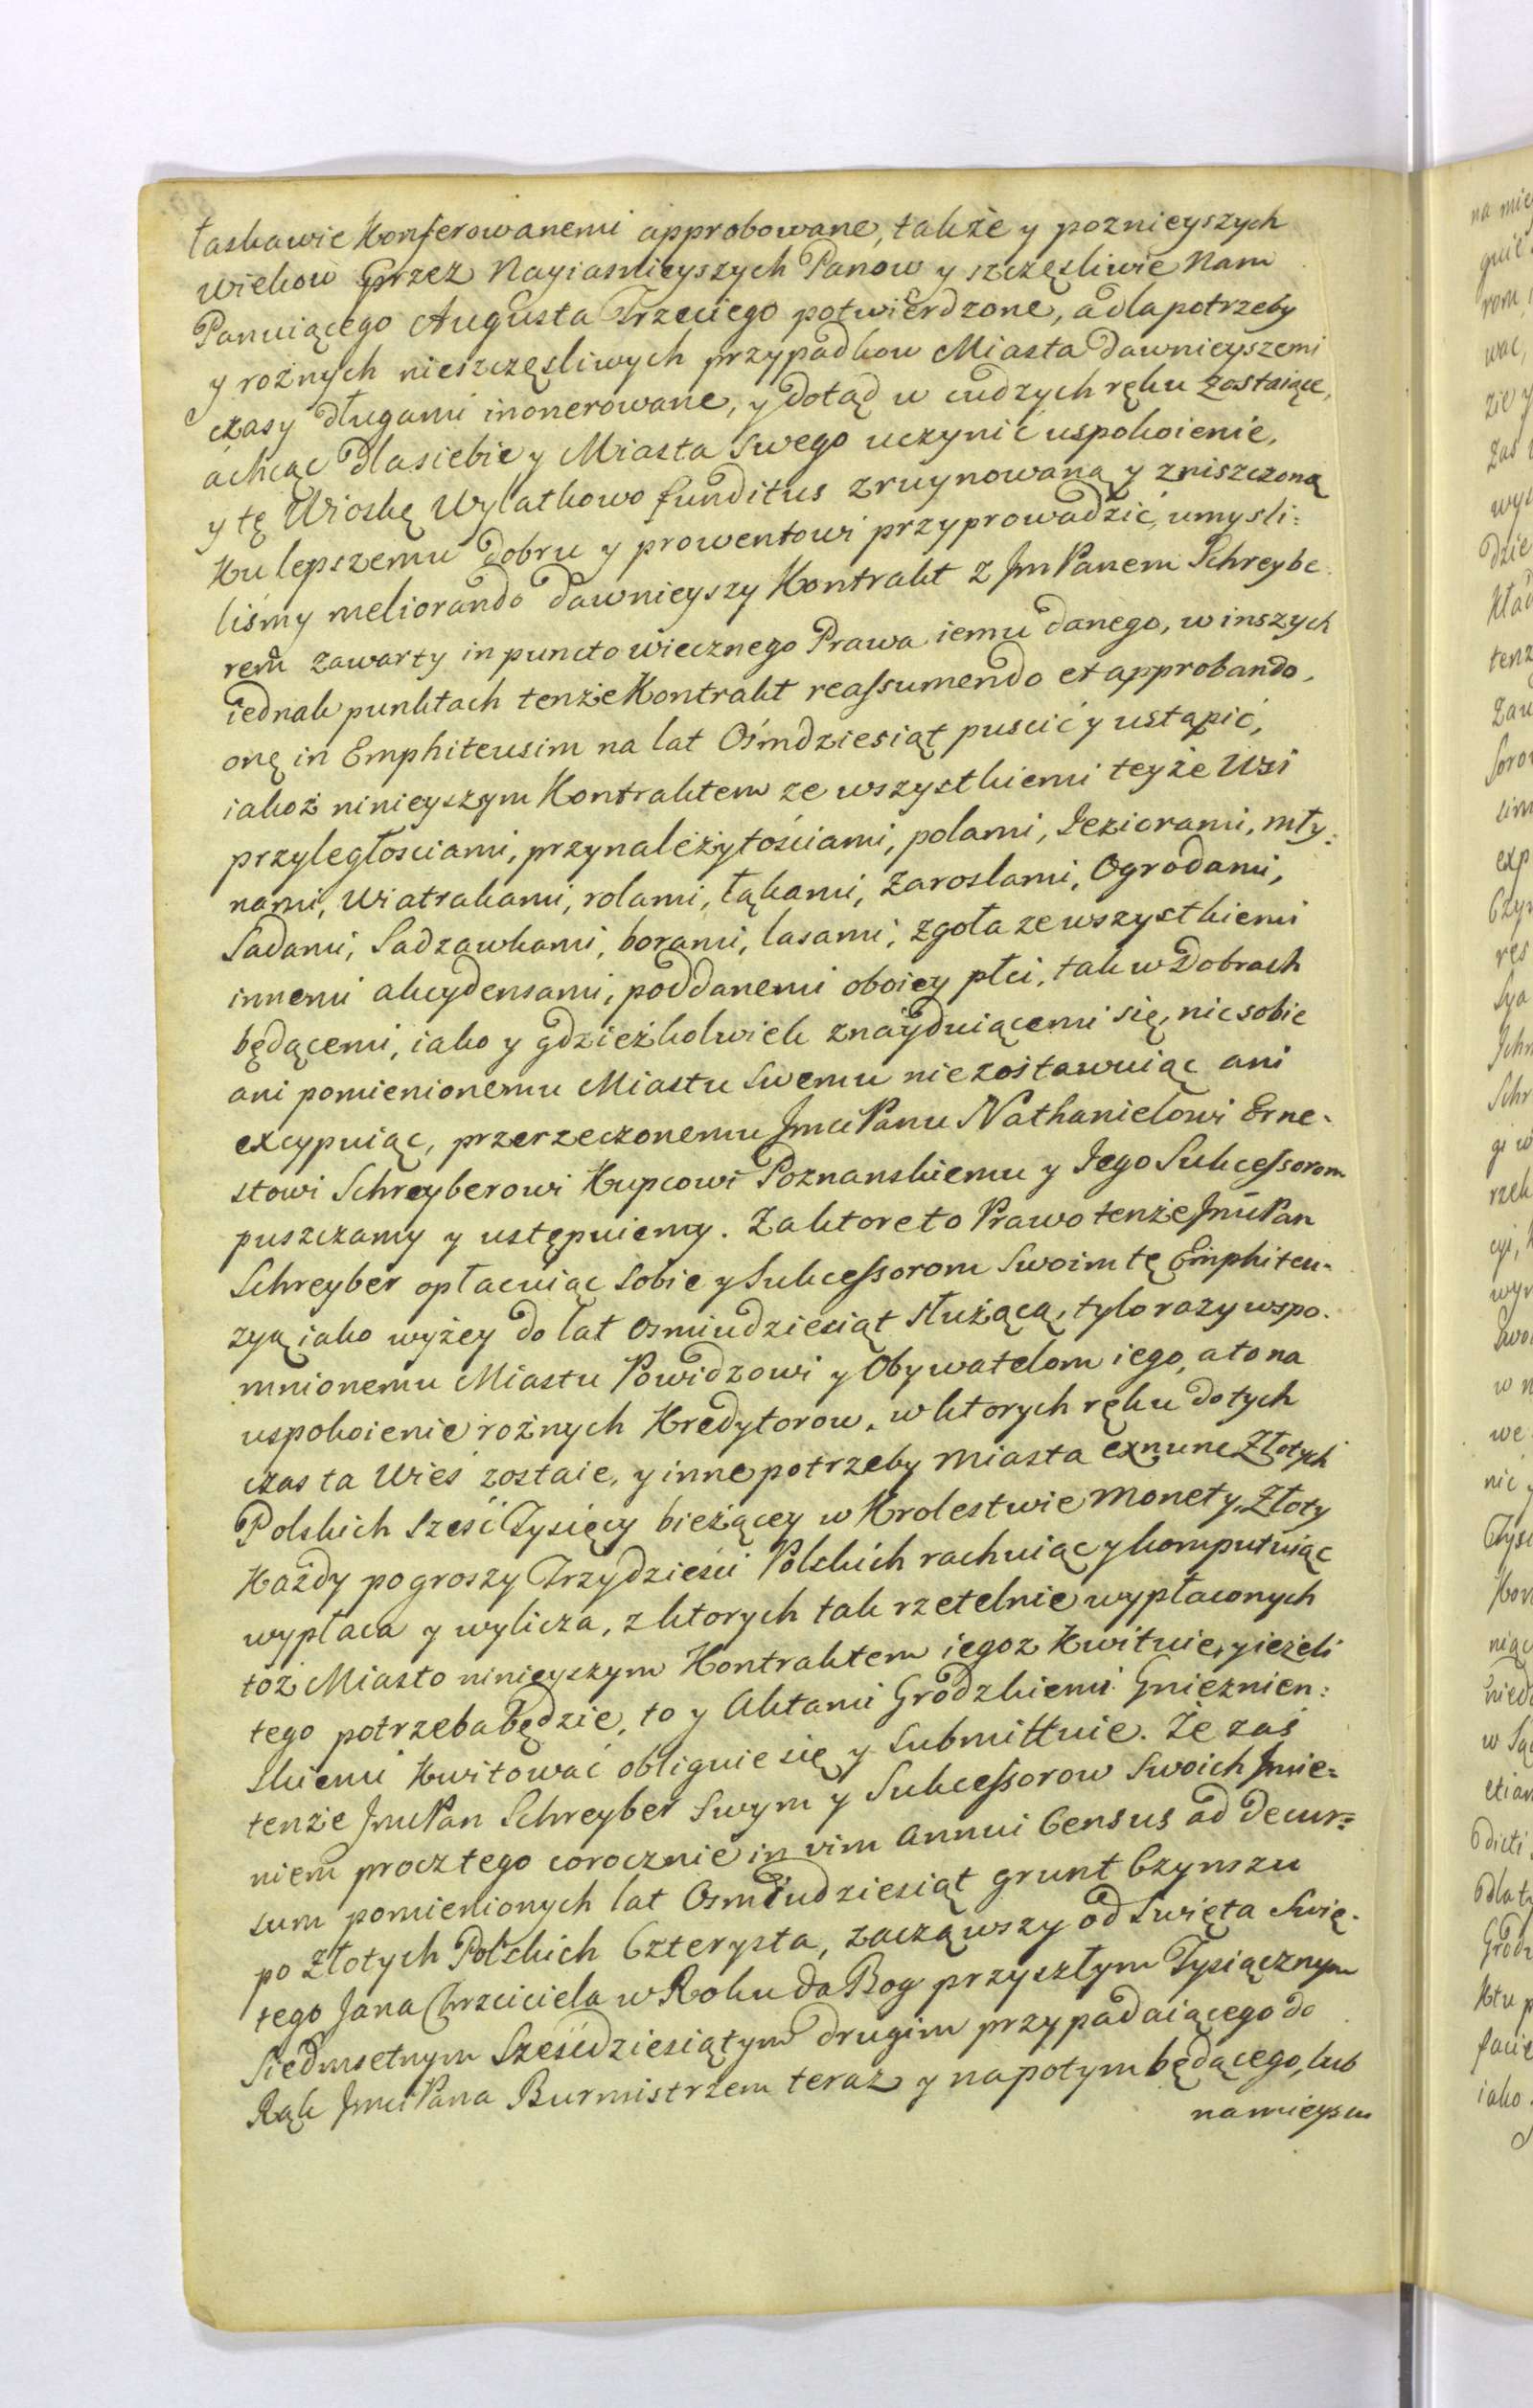 łaskawie Konferowanemi approbowane, także y poznieyszych
wiekow przez Nayiasnieyszych Panow y szczęsliwie Nam
Panuiącego Augusta Trzeciego potwierdzone, a dla potrzeby
y rożnych nieszczęsliwych przypadkow Miasta dawnieyszemi
czasy długami inonerowane, y dotąd w cudzych ręku zostaiące,
a chcąc dla siebie y Miasta Swego uczynić uspokoienie,
y tę Wioskę Wylatkowo funditus zruynowaną y zniszczoną
Ku lepszemu dobru y prowentowi przyprowadzić, umysli:
liśmy meliorando dawnieyszy Kontrakt z Jm Panem Schreybe
rem zawarty in puncto wiecznego Prawa iemu danego, w inszych
iednak punktach tenże Kontrakt reassumendo et approbando,
onę in Emphiteusim na lat Ośmdziesiąt puscić y ustąpić,
iakoż ninieyszym Kontraktem ze wszystkiemi teyże Wsi
przyległościami, przynależytościami, polami, Jeziorami, mły:
nami, Wiatrakami, rolami, łąkami, Zaroslami, Ogrodami,
Sadami, Sadzawkami, borami, lasami, zgoła ze wszystkiemi
innemi akcydensami, poddanemi oboiey płci, tak w Dobrach
będącemi, iako y gdzieżkolwiek znayduiącemi się, nic sobie
ani pomienionemu Miastu Swemu nie zostawuiąc ani
excypuiąc, przerzeczonemu Jmci Panu Nathanielowi Erne-
stowi Schreyberowi Kupcowi Poznanskiemu y Jego Sukcessorom
puszczamy y ustępuiemy. Za ktore to Prawo tenże Jmć Pan
Schreyber opłacuiąc Sobie y Sukcessorom Swoim tę Emphiteu-
zyą iako wyżey do lat Osmiudziesiąt służącą, tylo razy wspo.
mnionemu Miastu Powidzowi y Obywatelom iego, a to na
uspokoienie rożnych Kredytorow, w ktorych ręku do tych
czas ta Wieś zostaie, y inne potrzeby Miasta exnunc Złotych
Polskich Sześć Tysięcy bieżącey w Krolestwie Monety, Złoty
Każdy po groszy Trzydzieści Polskich rachuiąc y komputuiąc
wypłaca y wylicza, z ktorych tak rzetelnie wypłaconych
toż Miasto ninieyszym Kontraktem iegoż Kwituie, y ieżeli
tego potrzeba będzie, to y Aktami Grodzkiemi Gnieznien:
skiemi Kwitować obliguie się y Submittuie. Że zaś
tenże Jmć Pan Schreyber Swym y Sukcessorow Swoich Jmie=
niem procz tego corocznie in vim Annui Census ad decur=
sum pomienionych lat Osmiudziesiąt grunt Czynszu
po Złotych Polskich Czterysta, zacząwszy od Swięta Swię-
tego Jana Chrzciciela w Roku da Bog przyszłym Tysiącznym
Siedmsetnym Sześćdziesiątym drugim przypadaiącego do
Rąk Jmci Pana Burmistrzem teraz y napotym będącego, lub
na mieyscu